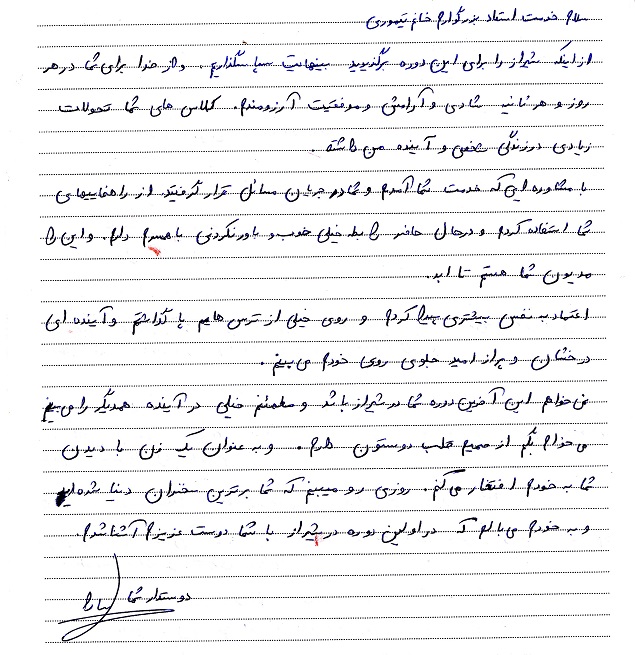 سلام خدمت استاد بزرگوارم خانم تیموری
از اینکه شیراز را برای این دوره برگزیدید بینهایت سپاسگذاریم. و از خدا برای شما در هر
روز و هر ثانیه شادی و آرامش و موفقیت آرزومندم. کلاس های شما تحولات
زیادی در زندگی شخصی و آینده من داشته.
با مشاوره ایی که خدمت شما آمدم و شما در جریان مسائل قرار گرفتید از راهنماییهای
شما استفاده کردم و در حال حاضر رابطه خیلی خوب و باورنکردنی با همسرم دارم. و این را
مدیون شما هستم تا ابد.
اعتماد به نفس بیشتری پیدا کردم و روی خیلی از ترس هایم پا گذاشتم و آینده ای
درخشان و پر از امید جلوی روی خودم می بینم.
نمی خواهم این آخرین دوره شما در شیراز باشد و مطمئنم خیلی در آینده همدیگر را می بینیم
می خوام بگم از صمیم قلب دوستون دارم. و به عنوان یک زن با دیدن
شما به خودم افتخار می کنم. روزی رو میبینم که شما برترین سخنران دنیا شده اید
و به خودم می بالم که در اولین دوره در شیراز با شما دوست عزیزم آشنا شدم.
دوستدار شما سارا